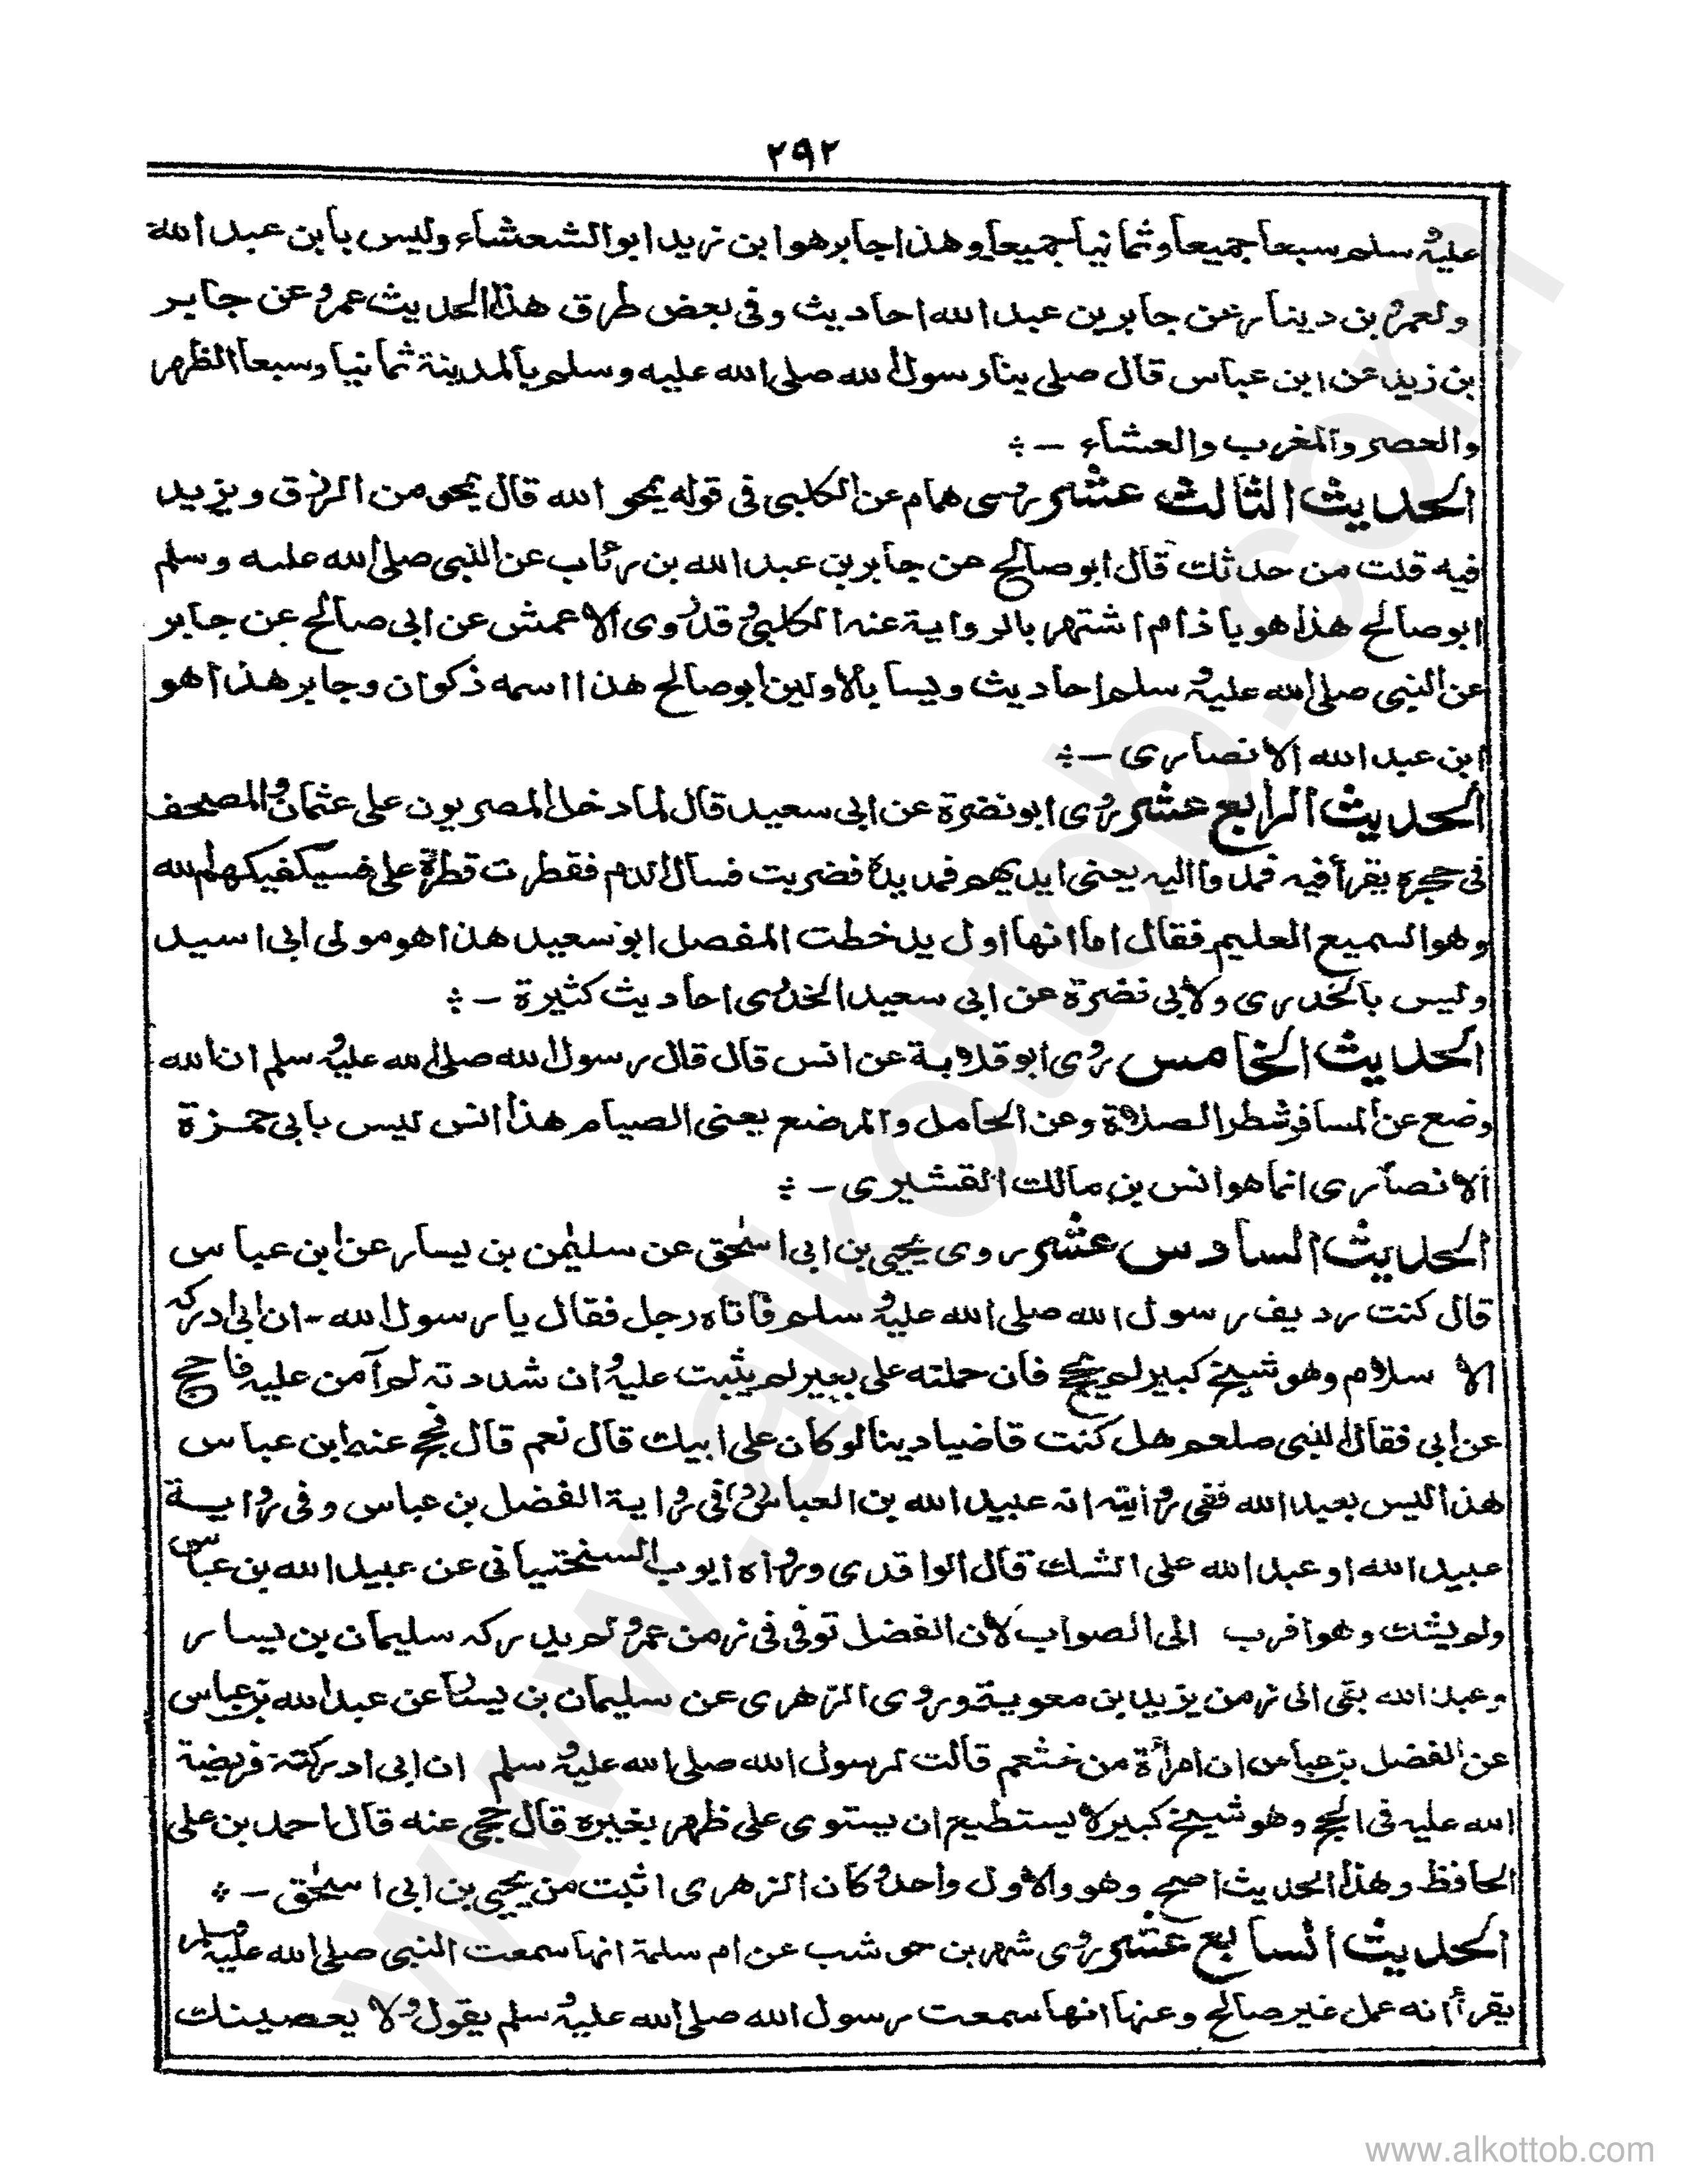 ٢٩٢
عليه وسلم سبعا جميعا وثمانيا جميعا وهذا جابر هو ابن زيد ابو الشعشاء وليس بابن عبد الله
ولعمرو بن دينار عن جابر بن عبد الله احاديث وفي بعض طرق هذا الحديث عمرو عن جابر
بن زيد عن ابن عباس قال صلى بنا رسول الله صلى الله عليه وسلم بالمدينة ثمانيا وسبعا الظهر
والعصر والمغرب والعشاء -
الحديث الثالث عشر روى همام عن الكلبي في قوله يمحو الله قال يمحو من الرزق ويزيد
فيه قلت من حدثك قال ابو صالح عن جابر بن عبد الله بن رئاب عن النبي صلى الله عليه وسلم
ابو صالح هذا هو باذام اشتهر بالرواية عنه الكلبي وقد روى الاعمش عن ابي صالح عن جابر
عن النبي صلى الله عليه وسلم احاديث وليسا بالاولين ابو صالح هذا اسمه ذكوان وجابر هذا هو
ابن عبد الله الانصارى -
الحديث الرابع عشر روى ابو نضرة عن ابى سعيد قال لما دخل المصريون على عثمان والمصحف
فى حجره يقرأ فيه فمدوا اليه يعنى ايديهم فمد يده فضربت فسال الدم فقطرت قطرة على فسيكفيكهم الله
وهو السميع العليم فقال اما انها اول يد خطت المفصل ابو سعيد هذا هو مولى ابى اسيد
وليس بالخدرى ولابي نضرة عن ابي سعيد الخدرى احاديث كثيرة -
الحديث الخامس روى ابو قلابة عن انس قال قال رسول الله صلى الله عليه وسلم ان الله
وضع عن المسافر شطر الصلاة وعن الحامل والمرضع يعنى الصيام هذا انس ليس بابى حمزة
الانصارى انما هو انس بن مالك القشيرى -
الحديث السادس عشر روى يحيى بن ابى اسحٰق عن سليمٰن بن يسار عن ابن عباس
قال كنت رديف رسول الله صلى الله عليه وسلم فاتاه رجل فقال يا رسول الله - ان ابى ادركه
الاسلام وهو شيخ كبير لم يحج فان حملته على بعير لم يثبت عليه وان شددته لم آمن عليه فاحج
عن ابى فقال النبى صلعم هل كنت قاضيا دينا لو كان على ابيك قال نعم قال فحج عنه ابن عباس
هذا ليس بعبد الله ففى روايته انه عبيد الله بن العباس وفى رواية الفضل بن عباس وفى رواية
عبيد الله او عبد الله على الشك قال الواقدى ورواه ايوب السختيانى عن عبيد الله بن عباس
ولم يشك وهو اقرب الى الصواب لان الفضل توفى فى زمن عمر ولم يدركه سليمان بن يسار
وعبد الله بقى الى زمن يزيد بن معوية وروى الزهرى عن سليمان بن يسار عن عبد الله بن عباس
عن الفضل بن عباس ان امرأة من خثعم قالت لرسول الله صلى الله عليه وسلم ان ابى ادركته فريضة
الله عليه فى الحج وهو شيخ كبير لا يستطيع ان يستوى على ظهر بعيره قال حجى عنه قال احمد بن على
الحافظ وهذا الحديث اصح وهو والاول واحد وكان الزهرى اثبت من يحيى بن ابى اسحٰق -
الحديث السابع عشر روى شهر بن حوشب عن ام سلمة انها سمعت النبى صلى الله عليه وسلم
يقرأ انه عمل غير صالح وعنها انها سمعت رسول الله صلى الله عليه وسلم يقول ولا يعصينك
www.alkottob.com